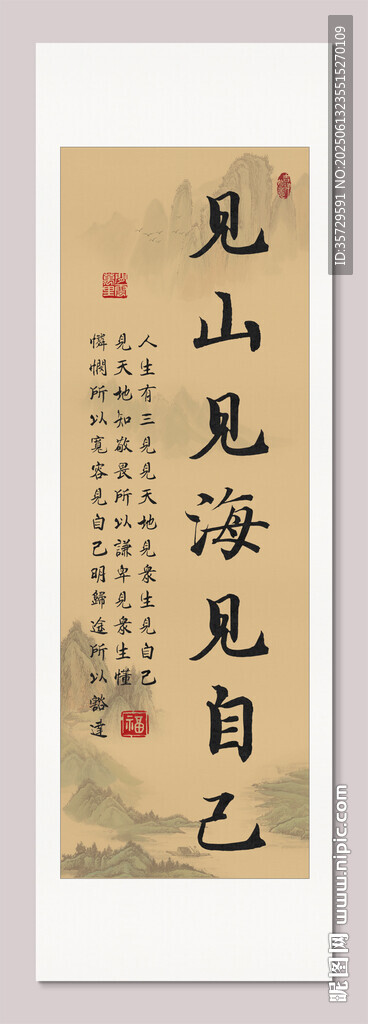 见山见海见自己
人生有三見見天地見衆生見自己
見天地知敬畏所以謙卑見衆生懂
憐憫所以寬容見自己明歸途所以豁達
福
ID:35729591 NO:20250613235515270109
昵图网 www.nipic.com